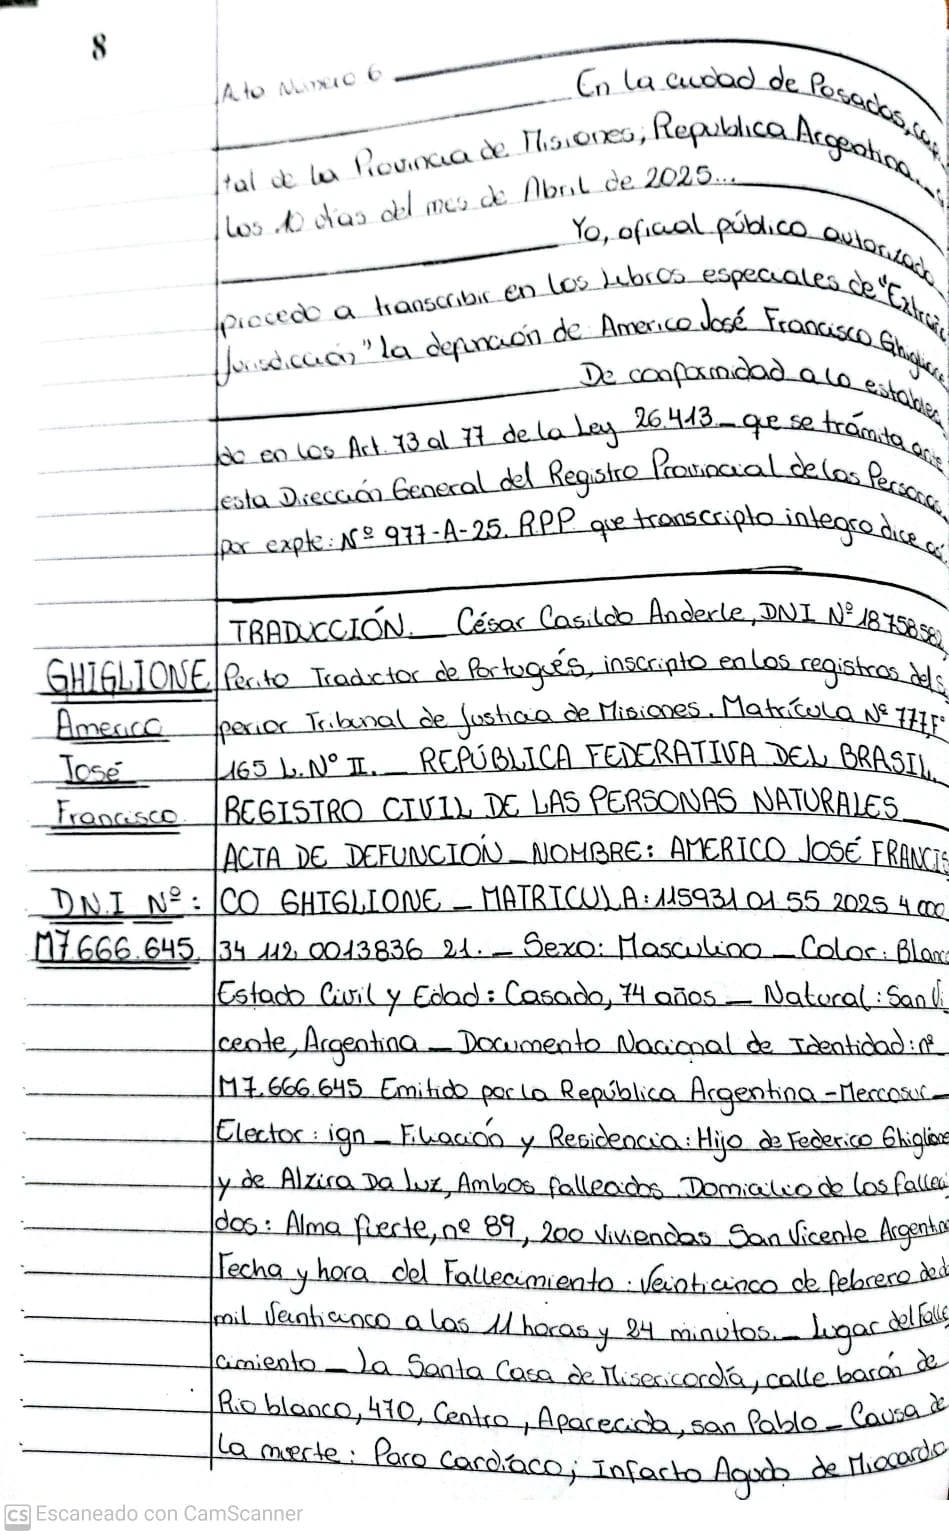 8
Ato Número 6
En la ciudad de Posadas, cap
tal de la Provincia de Misiones; Republica Argentina...
los 10 días del mes de Abril de 2025...
Yo, oficial público autorizado
procedo a transcribir en los Libros especiales de "Extraña
Jurisdicción" la defunción de Americo José Francisco Ghiglione
De conformidad a lo establec
do en los Art. 73 al 77 de la Ley 26.413_ que se trámita ante
esta Dirección General del Registro Provincial de las Personas,
por expte: Nº 977-A-25. RPP que transcripto integro dice así
TRADUCCIÓN. _ César Casildo Anderle, DNI Nº 18758582,
GHIGLIONE
Americo
José
Francisco
DN.I Nº:
M7.666.645
Perito Traductor de Portugués, inscripto en los registros del S
perior Tribunal de Justicia de Misiones. Matrícula Nº 777, Fº
165 L. Nº II. _ REPÚBLICA FEDERATIVA DEL BRASIL.
REGISTRO CIVIL DE LAS PERSONAS NATURALES
ACTA DE DEFUNCIÓN _ NOMBRE: AMERICO JOSÉ FRANCIS
CO GHIGLIONE _ MATRICULA: 115931 01 55 2025 4 000
34 112 0013836 21. _ Sexo: Masculino _ Color: Blanco
Estado Civil y Edad: Casado, 74 años _ Natural: San Vi
cente, Argentina _ Documento Nacional de Identidad: nº
M7.666.645 Emitido por la República Argentina - Mercosur -
Elector: ign _ Filiación y Residencia: Hijo de Federico Ghiglione
y de Alzira Da Luz, Ambos fallecidos. Domicilio de los falleci
dos: Alma fuerte, nº 89, 200 viviendas San Vicente Argentina
Fecha y hora del Fallecimiento: Veinticinco de febrero de d
mil Veinticinco a las 11 horas y 24 minutos. _ Lugar del Falle
cimiento _ La Santa Casa de Misericordía, calle barón de
Rio blanco, 470, Centro, Aparecida, san Pablo _ Causa de
la muerte: Paro Cardíaco; Infarto Agudo de Miocardio
CS Escaneado con CamScanner